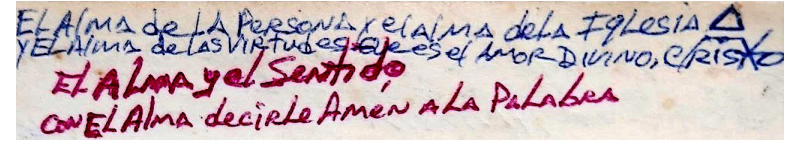 EL Alma de LA Persona y el alma de la Iglesia △
y EL Alma de las virtudes que es el Amor Divino, Cristo
El Alma y el Sentido,
con El Alma decirle Amen a La Palabra